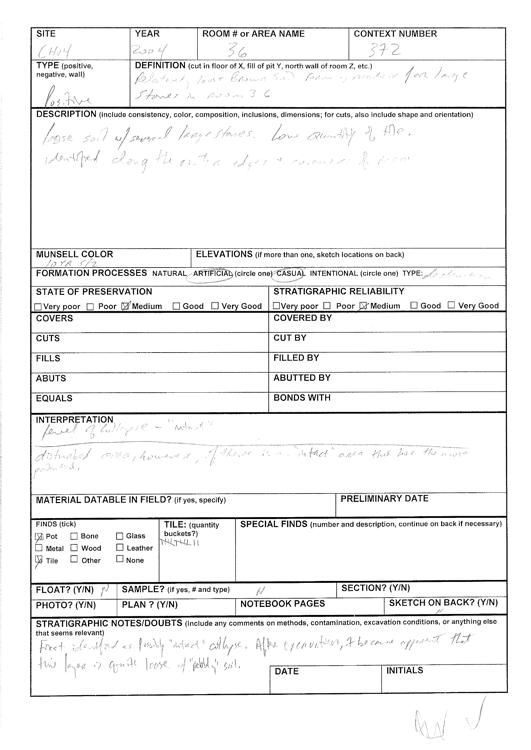 SITE YEAR ROOM # or AREA NAME CONTEXT NUMBER
CH04 2004 36 372
TYPE (positive, negative, wall) DEFINITION (cut in floor of X, fill of pit Y, north wall of room Z, etc.)
Positive loose Brown Soil large
stones in room 36
DESCRIPTION (include consistency, color, composition, inclusions, dimensions; for cuts, also include shape and orientation)
loose soil w/ several large stones. Low quantity of tile.
identified along the entire edges + of room
MUNSELL COLOR ELEVATIONS (if more than one, sketch locations on back)
10YR 5/2
FORMATION PROCESSES NATURAL ARTIFICIAL (circle one) CASUAL INTENTIONAL (circle one) TYPE: destruction
STATE OF PRESERVATION STRATIGRAPHIC RELIABILITY
Very poor Poor Medium Good Very Good Very poor Poor Medium Good Very Good
COVERS COVERED BY
CUTS CUT BY
FILLS FILLED BY
ABUTS ABUTTED BY
EQUALS BONDS WITH
INTERPRETATION
level of collapse - "intact"
disturbed area, however, if there is an "intact" area this has the more
MATERIAL DATABLE IN FIELD? (if yes, specify) PRELIMINARY DATE
FINDS (tick) TILE: (quantity buckets?) SPECIAL FINDS (number and description, continue on back if necessary)
Pot Bone Glass
Metal Wood Leather
Tile Other None
FLOAT? (Y/N) N SAMPLE? (if yes, # and type) N SECTION? (Y/N)
PHOTO? (Y/N) PLAN ? (Y/N) NOTEBOOK PAGES SKETCH ON BACK? (Y/N)
STRATIGRAPHIC NOTES/DOUBTS (include any comments on methods, contamination, excavation conditions, or anything else
that seems relevant)
First identified as possibly "intact" collapse. After excavations, it became apparent that
this layer is quite loose of "pebbly" soil.
DATE INITIALS